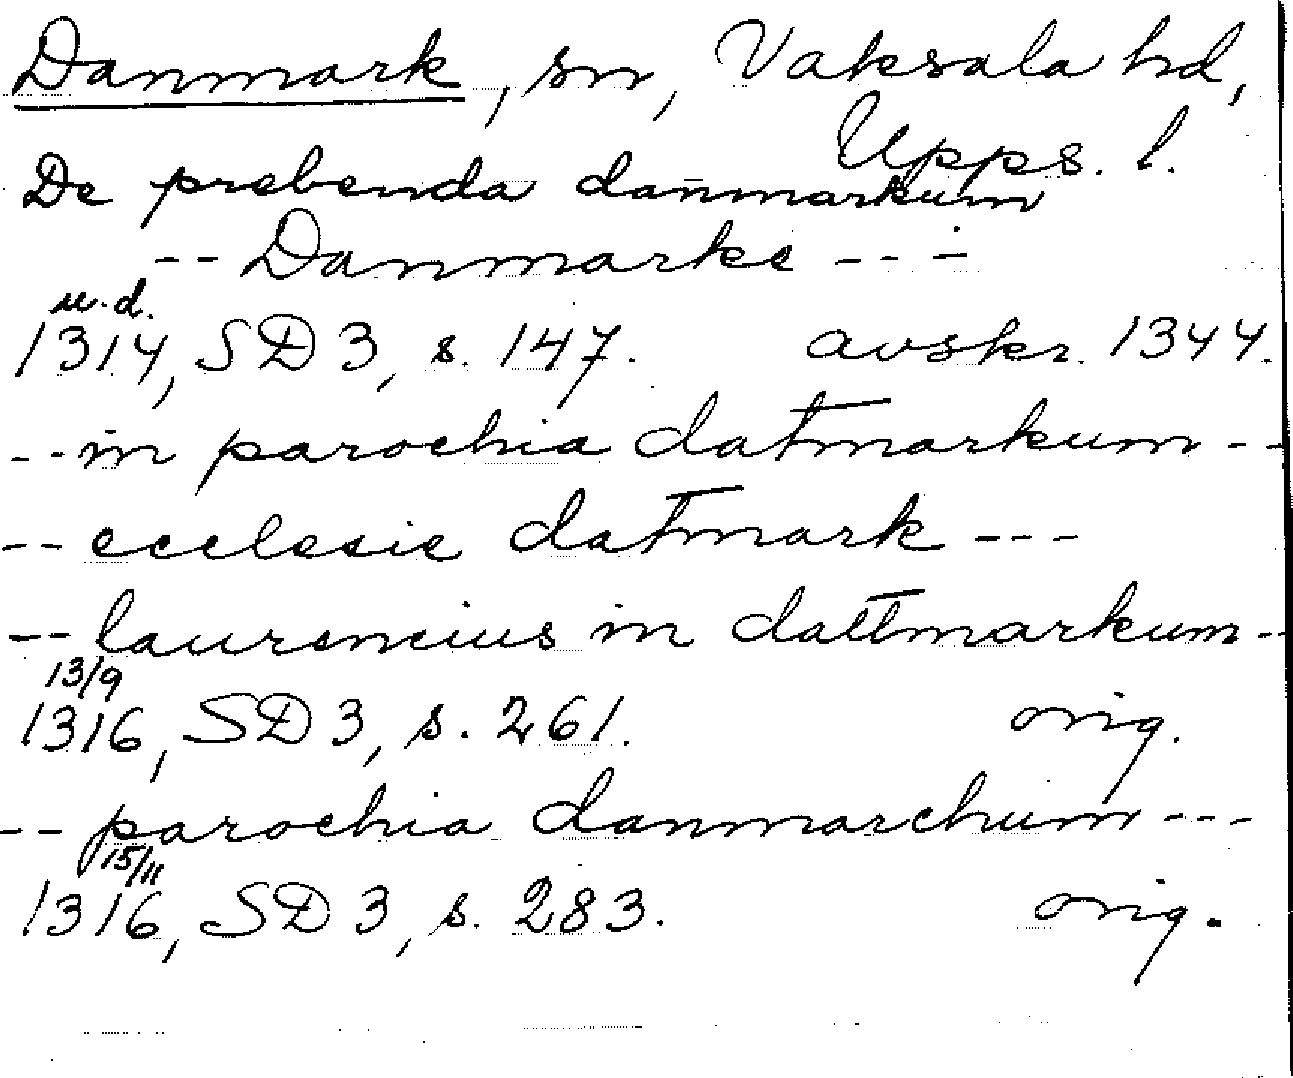 Danmark, sn, Vaksala hd,
Upps. l.
De prebenda dan̄markum
-- Danmarke ---
u.d.
1314, SD 3, s. 147. avskr. 1344.
-- in parochia datmarkum --
-- ecclesie datmark ---
-- laurencius in dattmarkum --
13/9
1316, SD 3, s. 261. orig.
-- parochia danmarchum ---
15/11
1316, SD 3, s. 283. orig.